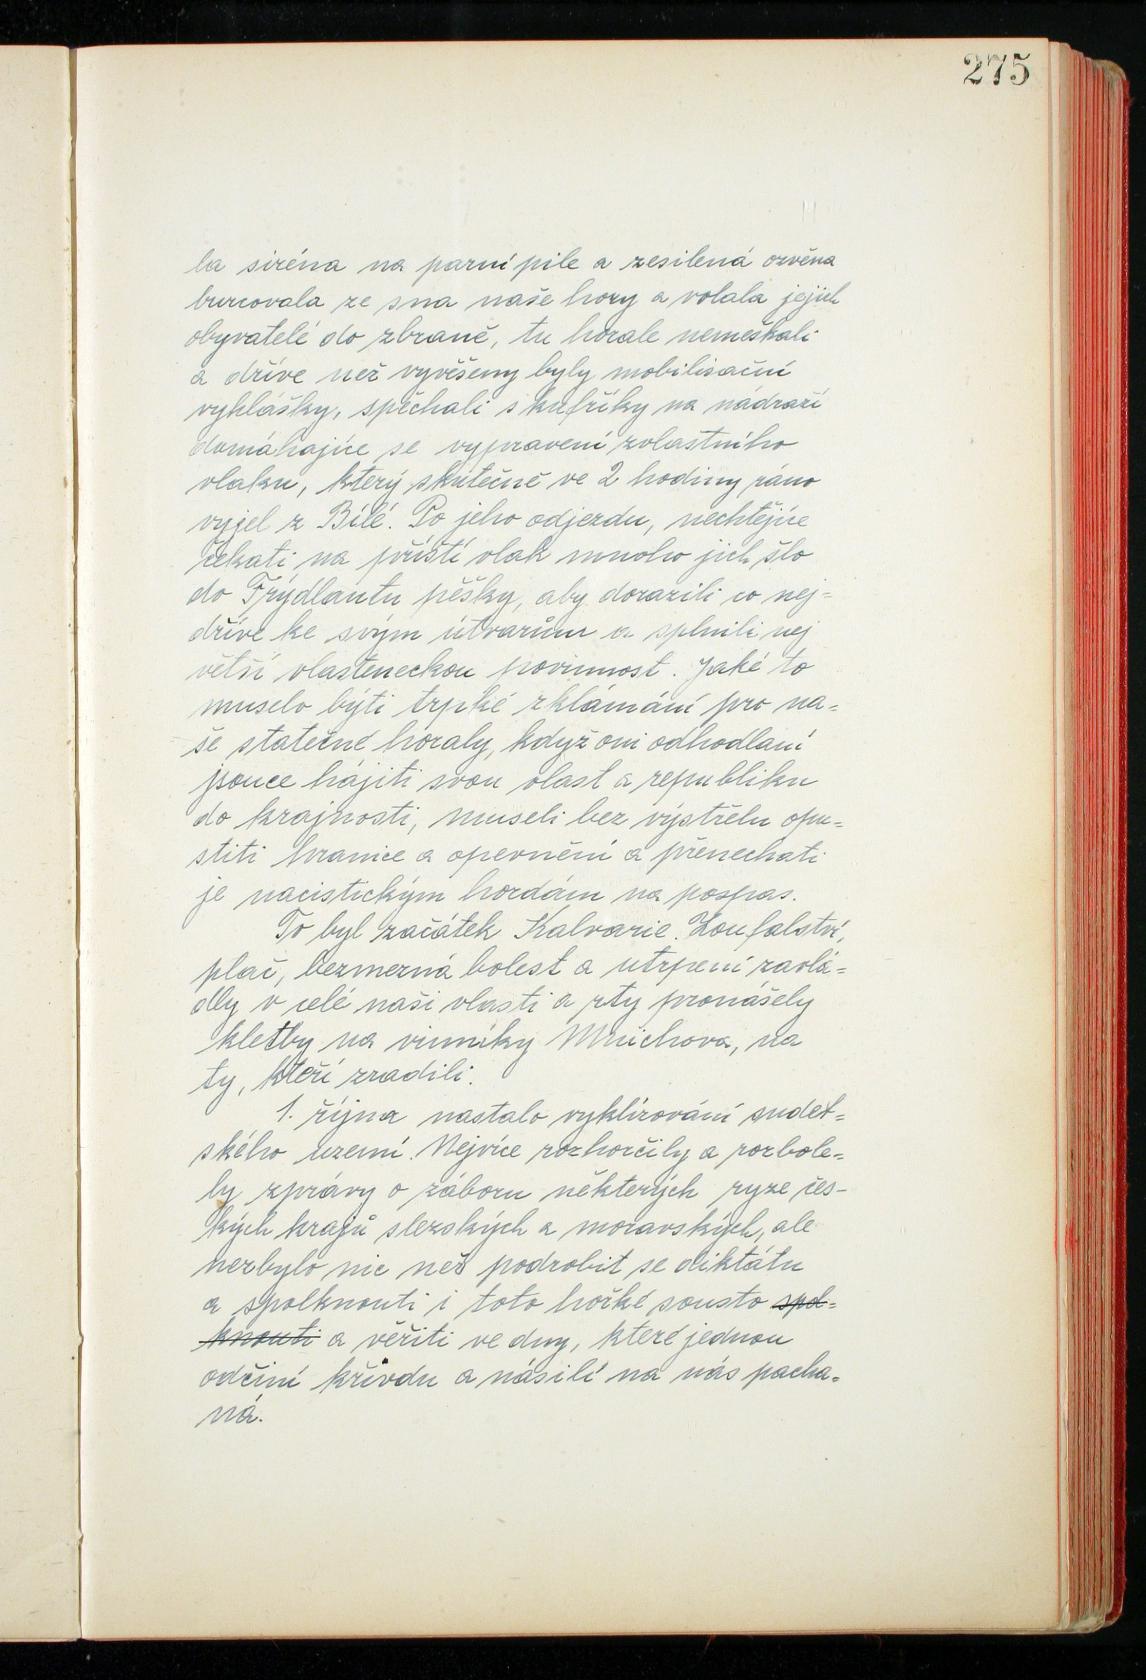 275
la siréna na parní pile a zesílená ozvěna
burcovala ze sna naše hory a volala jejich
obyvatelé do zbraně, tu horale nemeškali
a dříve než vyvěšeny byly mobilisační
vyhlášky, spěchali s kufříky na nádraží
domáhajíce se vypravení zvlaštního
vlaku, který skutečně ve 2 hodiny ráno
vyjel z Bílé. Po jeho odjezdu, nechtějíce
čekati na příští vlak mnoho jich šlo
do Frýdlantu pěšky, aby dorazili co nej=
dříve ke svým útvarům a splnili nej
větší vlasteneckou povinnost. Jaké to
muselo býti trpké zklámání pro na=
še statečné horaly, když oni odhodlaní
jsouce hájiti svou vlast a republiku
do krajnosti, museli bez výstřelu opu=
stiti hranice a opevnění a přenechati
je nacistickým hordám na pospas.
To byl začátek Kalvarie. Zoufalství,
plač, bezmezná bolest a utrpení zavlá=
dly v celé naši vlasti a rty pronášely
kletby na vinníky Mnichova, na
ty, kteří zradili.
1. října nastalo vyklizování sudet=
ského uzemí. Nejvíce rozhorčily a rozbole=
ly zprávy o záboru některých ryze čes-
kých krajů slezských a moravských, ale
nezbylo nic než podrobit se diktátu
a spolknouti i toto hořké sousto spol=
knouti a věřiti ve dny, které jednou
odčiní křivdu a násilí na nás pacha=
ná.